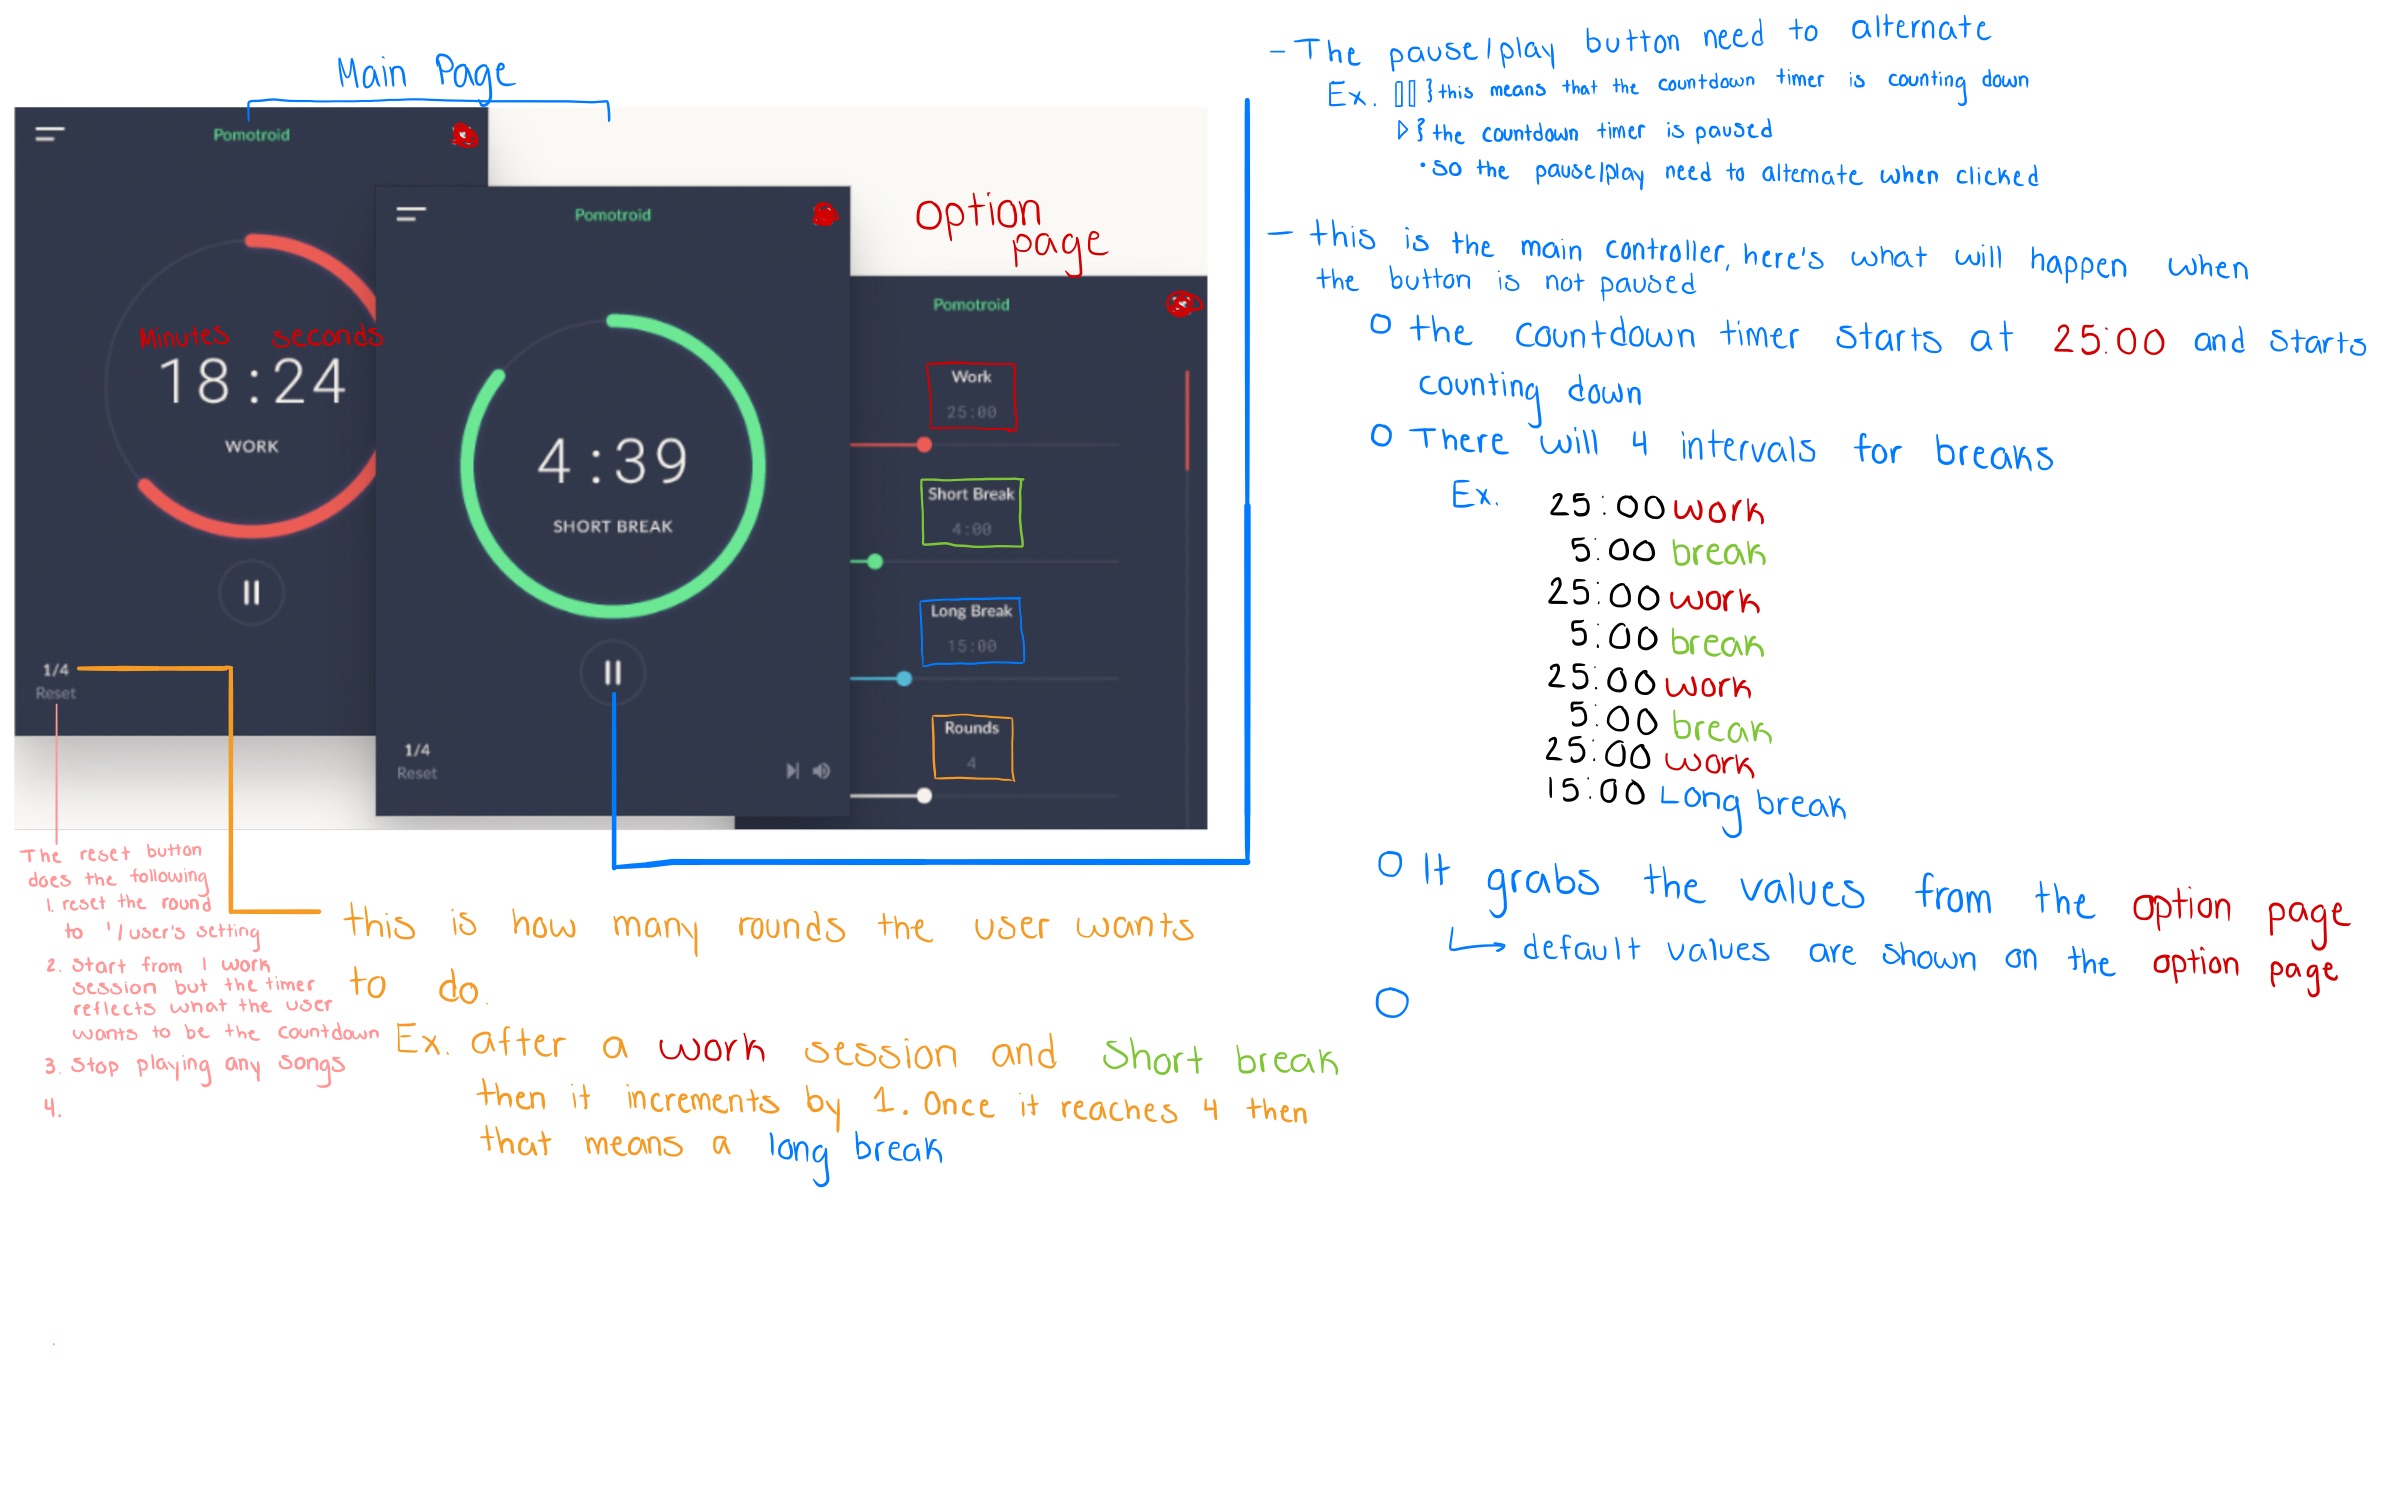 Main Page
Pomotroid
Minutes seconds
18:24
WORK
1/4
Reset
Pomotroid
4:39
SHORT BREAK
1/4
Reset
option
page
Pomotroid
Work
25:00
Short Break
4:00
Long Break
15:00
Rounds
4
The reset button
does the following
1. reset the round
to 1/user's setting
2. Start from 1 work
session but the timer
reflects what the user
wants to be the countdown
3. Stop playing any songs
4.
this is how many rounds the user wants
to do.
Ex. after a work session and Short break
then it increments by 1. Once it reaches 4 then
that means a long break
- The pause/play button need to alternate
Ex. ▯▯ } this means that the countdown timer is counting down
▷ } the countdown timer is paused
• so the pause/play need to alternate when clicked
- this is the main controller, here's what will happen when
the button is not paused
O the countdown timer starts at 25:00 and starts
counting down
O There will 4 intervals for breaks
Ex. 25:00 work
5:00 break
25:00 work
5:00 break
25:00 work
5:00 break
25:00 work
15:00 Long break
O It grabs the values from the option page
↳ default values are shown on the option page
O